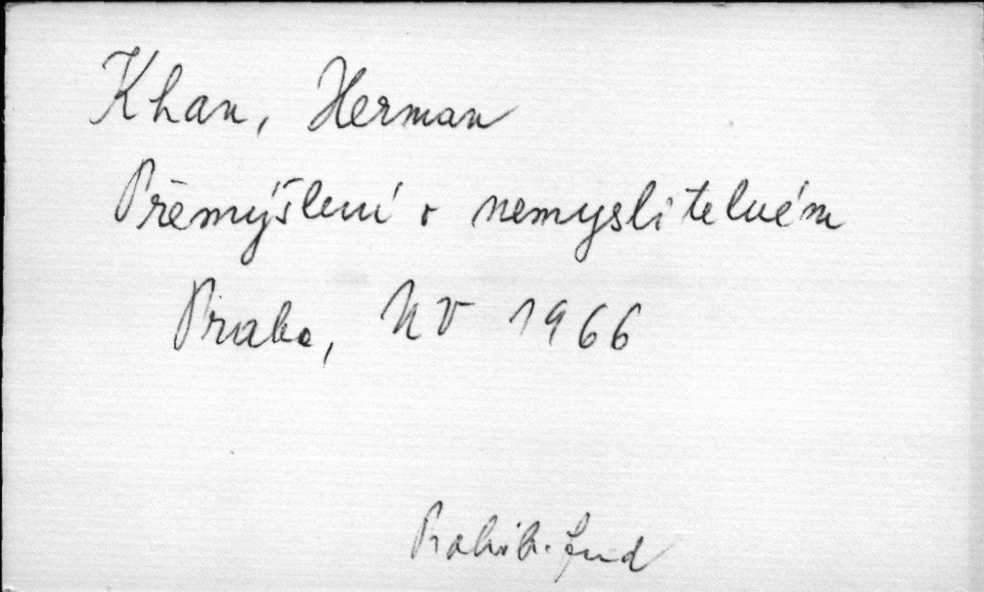 Khan, Herman
Přemýšlení o nemyslitelném
Praha, NV 1966
Prohib. fond